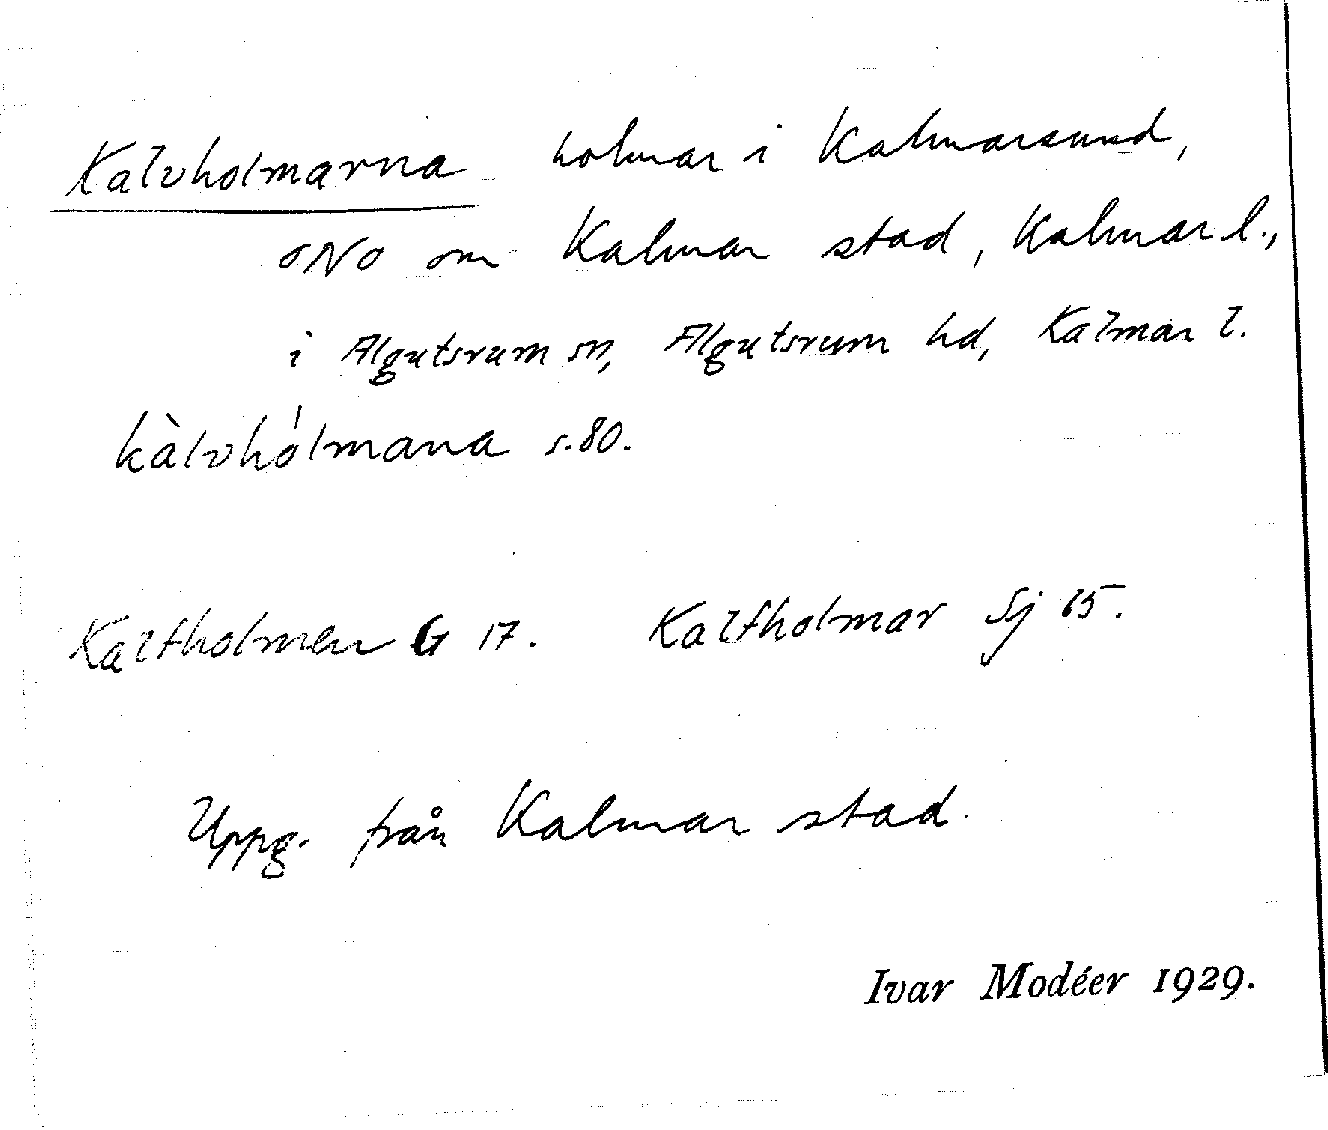 Kalvholmarna holmar i Kalmarsund,
ONO om Kalmar stad, Kalmar l.,
i Algutsrum sn, Algutsrum hd, Kalmar l.
kàlvhólmana s.80.
Kalfholmen G 17. Kalfholmar Sj 65.
Uppg. från Kalmar stad.
Ivar Modéer 1929.